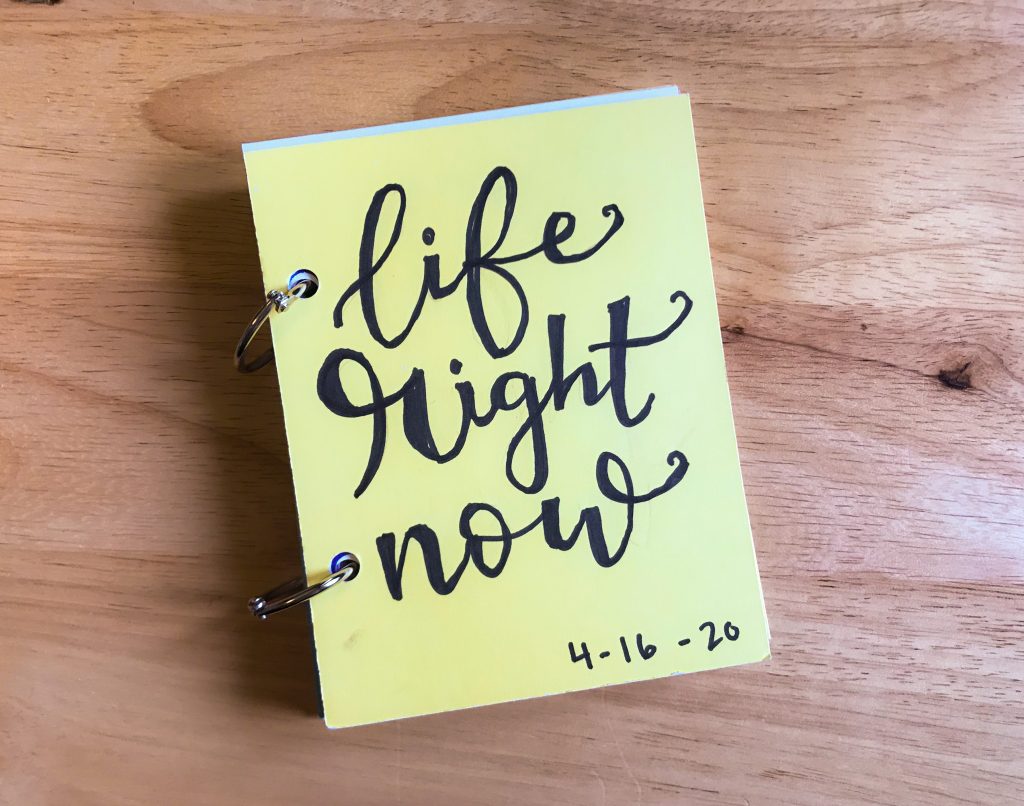 life
right
now
4-16-20